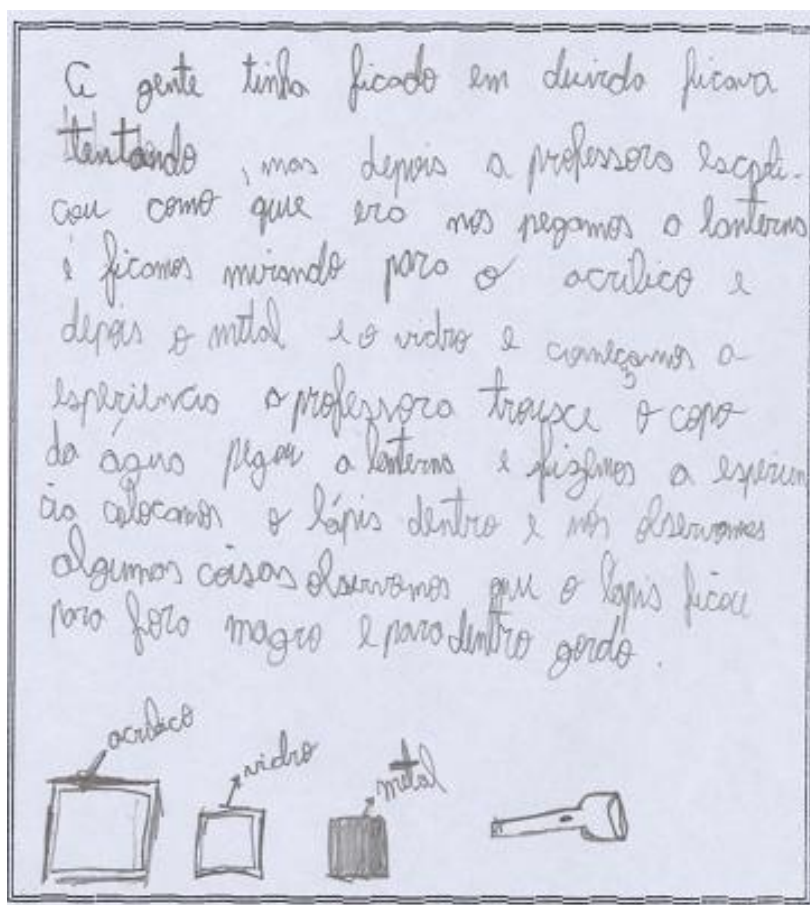 A gente tinha ficado em duvida ficava
tentando, mas depois a professora escpli-
cou como que era nos pegamos a lanterna
e ficamos mirando para o acrílico e
depois o metal e o vidro e começamos a
esperiencia a professora trousce o copo
da água pegou a lanterna e fizemos a esperien
cia colocamos o lápis dentro e nós observamos
algumas coisas observamos que o lapis ficou
para fora magro e para dentro gordo.
acrilico
vidro
metal